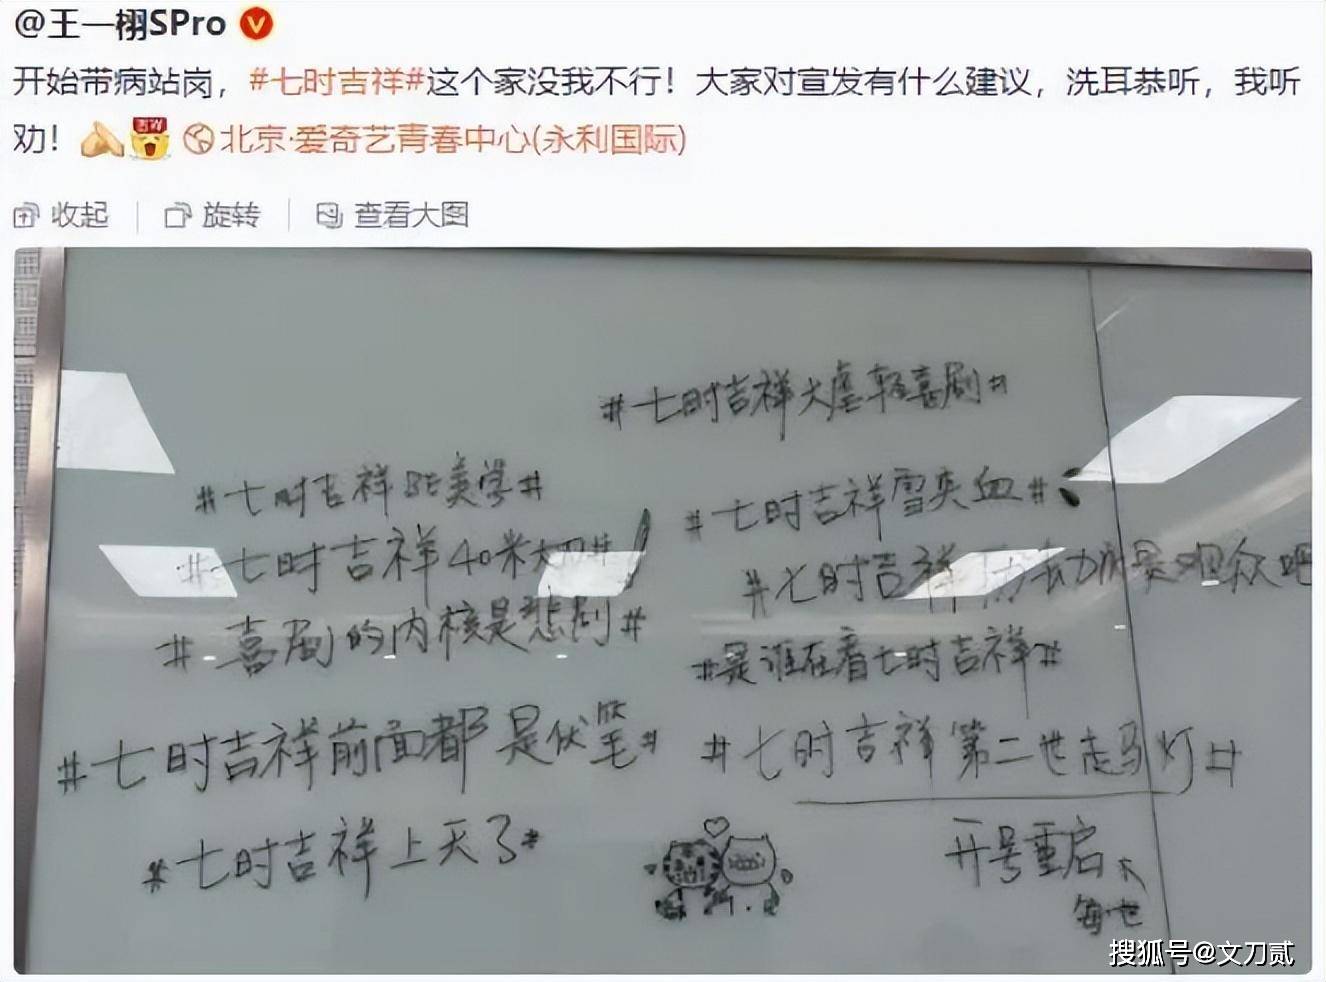 @王一栩SPro
开始带病站岗，#七时吉祥#这个家没我不行！大家对宣发有什么建议，洗耳恭听，我听
劝！ 北京·爱奇艺青春中心(永利国际)
收起 旋转 查看大图
#七时吉祥大虐轻喜剧#
#七时吉祥BE美学#
#七时吉祥40米大刀#
#喜剧的内核是悲剧#
#七时吉祥前面都是伏笔#
#七时吉祥上天了#
#七时吉祥雪夹血#
#七时吉祥
观众吧
#是谁在看七时吉祥#
#七时吉祥第二世走马灯#
开号重启
每世
搜狐号@文刀贰